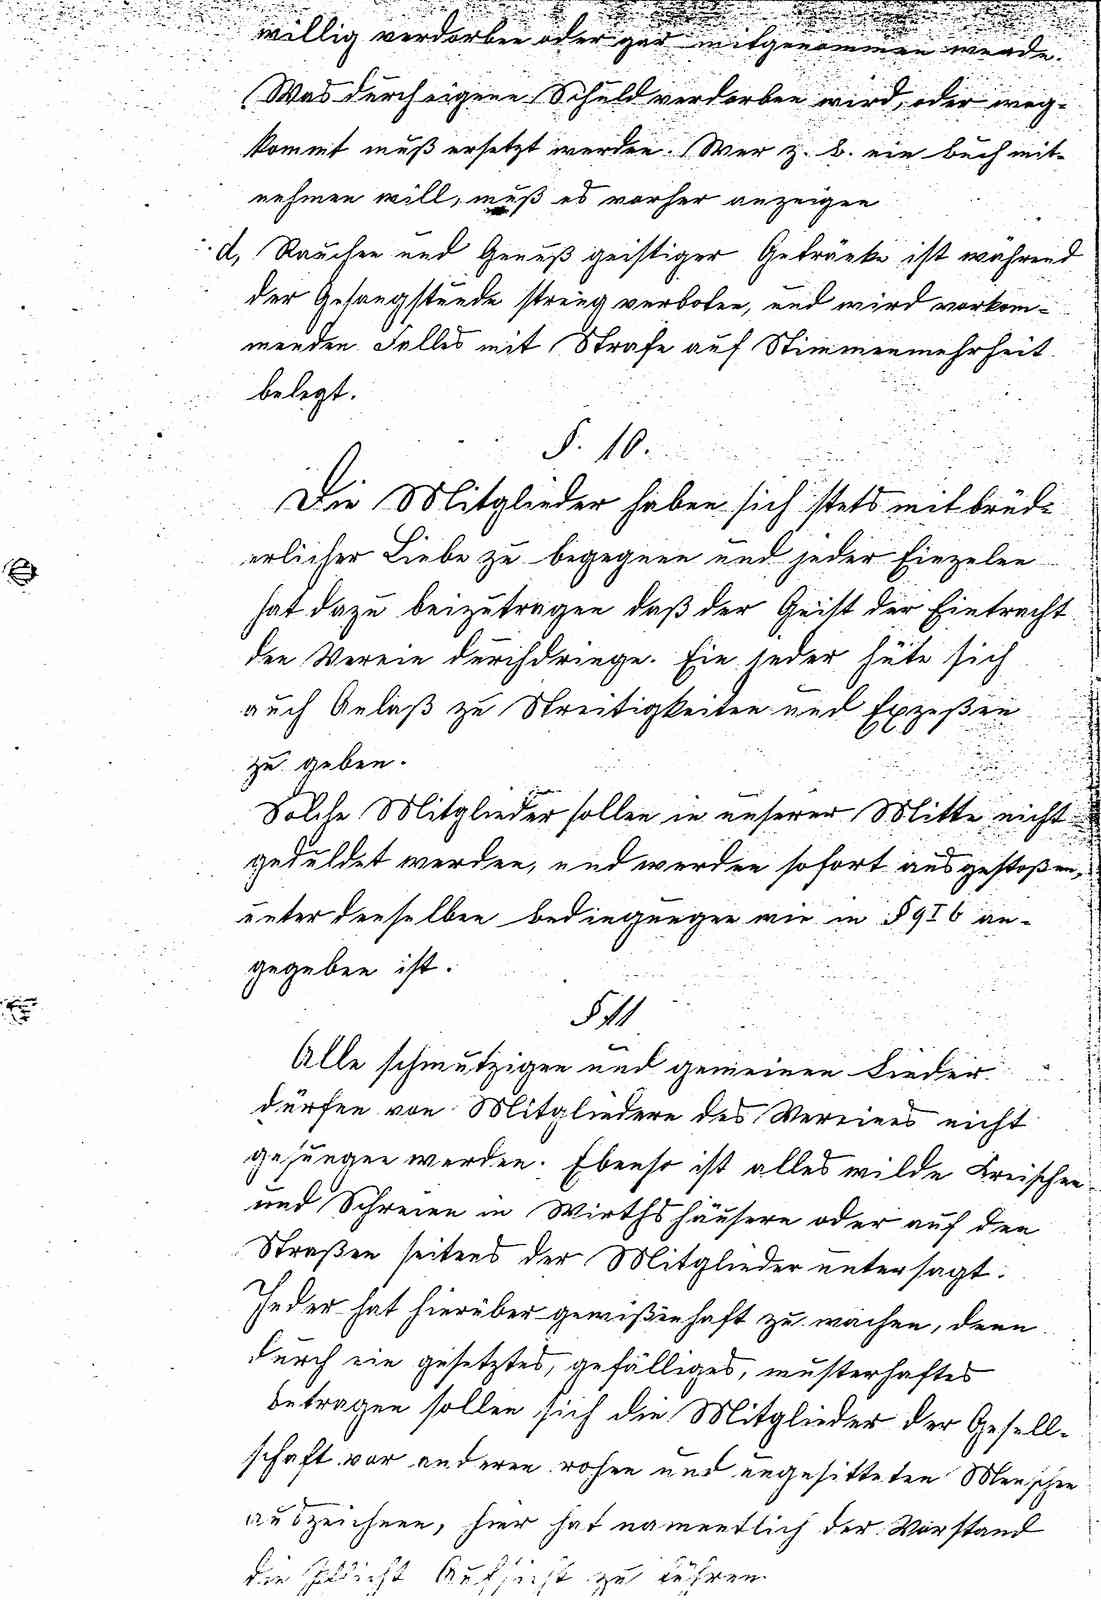 willig verdorben oder gar mitgenommen werde.
Was durch eigene Schuld verdorben wird, oder weg-
kommt muß ersetzt werden. Wer z. B. ein buch mit-
nehmen will, muß es vorher anzeigen
d, Rauchen und Genuß geistiger Getränke ist während
der Gesangstunde streng verboten, und wird vorkom-
menden Falles mit Strafe auf Stimmenmehrheit
belegt.
§. 10.
Die Mitglieder haben sich stets mit brüd-
erlicher Liebe zu begegnen und jeder Einzelne
hat dazu beizutragen daß der Geist der Eintracht
den Verein durchdringe. Ein jeder hüte sich
auch Anlaß zu Streitigkeiten und Exzeßen
zu geben.
Solche Mitglieder sollen in unserer Mitte nicht
geduldet werden, und werden sofort ausgestoßen,
unter denselben bedingungen wie in § 9 I b an-
gegeben ist.
§ 11
Alle schmutzigen und gemeinen Lieder
dürfen von Mitgliedern des Vereines nicht
gesungen werden. Ebenso ist alles wilde Kreischen
und Schreien in Wirthshäusern oder auf den
Straßen seitens der Mitglieder untersagt.
Jeder hat hierüber gewißenhaft zu wachen, denn
durch ein gesetztes, gefälliges, musterhaftes
betragen sollen sich die Mitglieder der Gesell-
schaft vor anderen rohen und ungesitteten Menschen
auszeichnen, hier hat namentlich der Vorstand
die Pflicht Aufsicht zu führen.